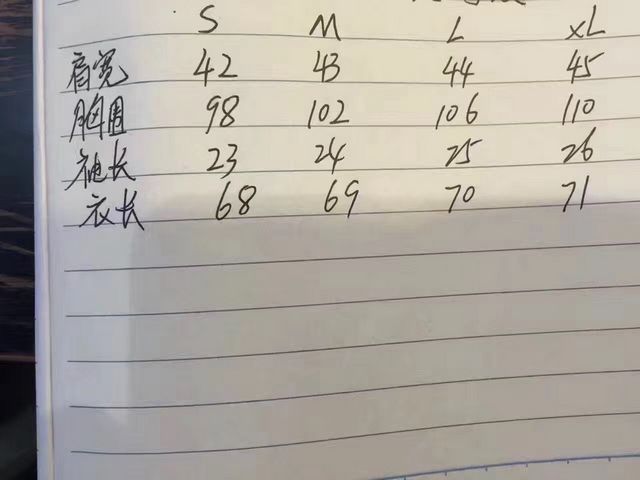 S M L XL
肩宽 42 43 44 45
胸围 98 102 106 110
袖长 23 24 25 26
衣长 68 69 70 71